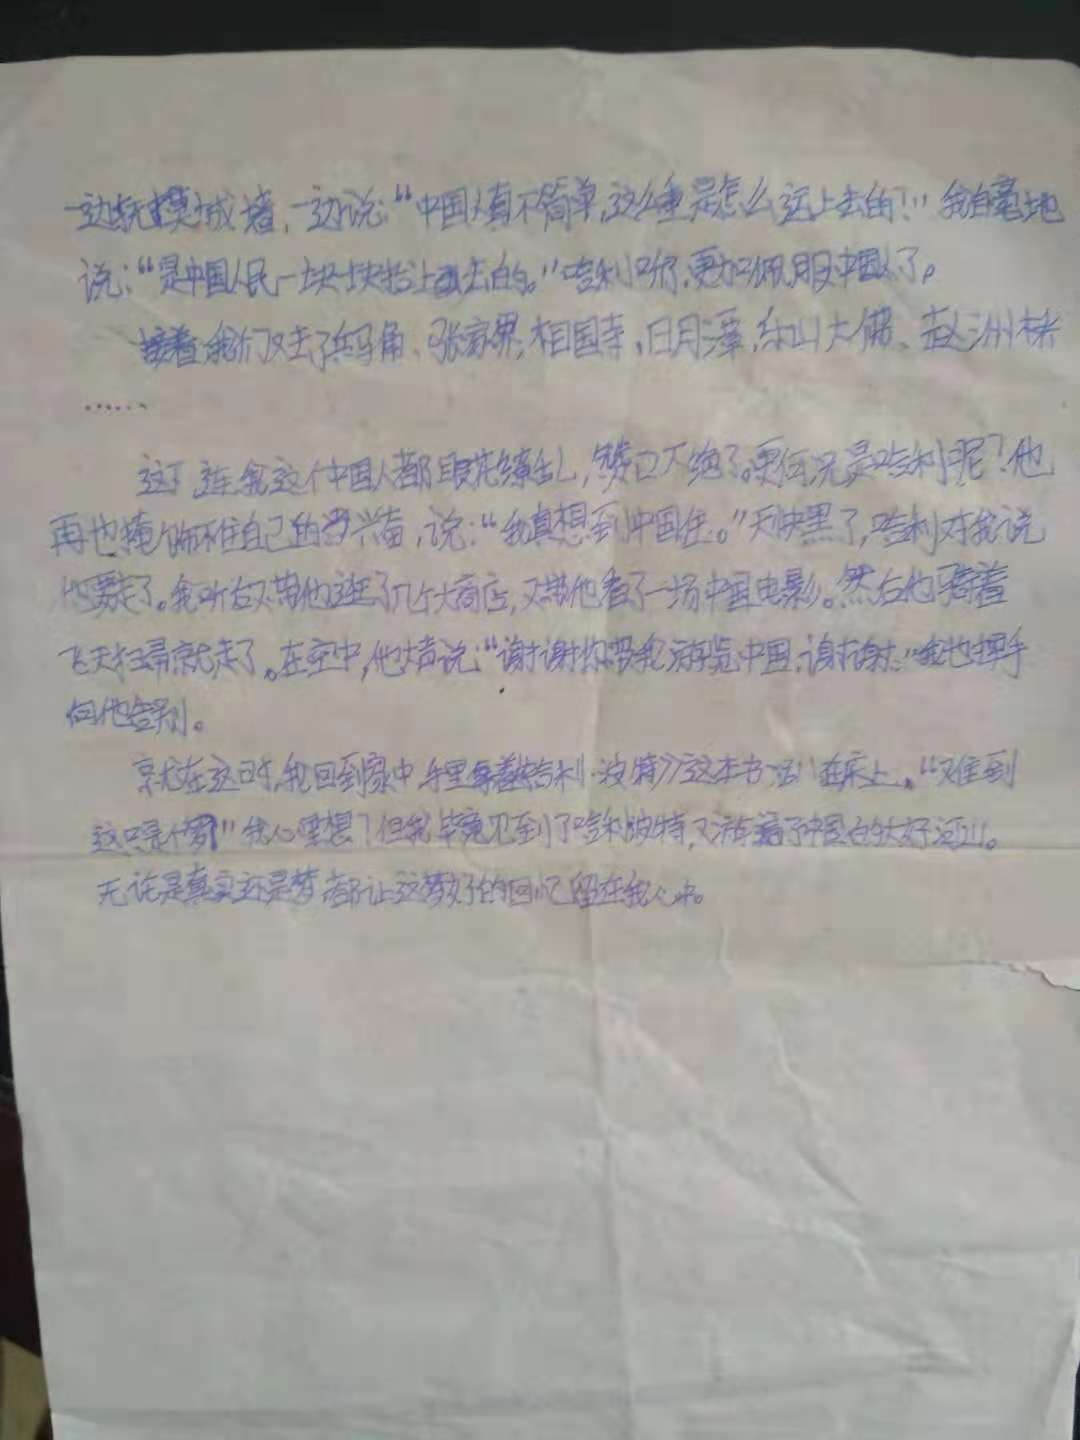 一边抚摸城墙，一边说：“中国人真不简单，这么重是怎么运上去的！”我自豪地
说：“是中国人民一块一块抬上去的。”哈利听了，更加佩服中国人了。
接着我们又去了兵马俑、张家界，相国寺，日月潭，乐山大佛、赵洲桥
……
这下连我这个中国人都眼花缭乱，赞口不绝了。更何况是哈利呢？他
再也掩饰不住自己的兴奋，说：“我真想到中国住。”天快黑了，哈利对我说
他要走了。我听后又带他逛了几个大商店，又带他看了一场中国电影。然后他骑着
飞天扫帚就走了。在空中，他大声说：“谢谢你带我游览中国，谢谢。”我也挥手
向他告别。
就在这时，我回到家中手里拿着哈利·波特》这本书 在床上。“难到
这只是个梦”我心里想？但我毕竟见到了哈利波特，又游遍了中国的大好河山。
无论是真实还是梦都让这美好的回忆留在我心中。